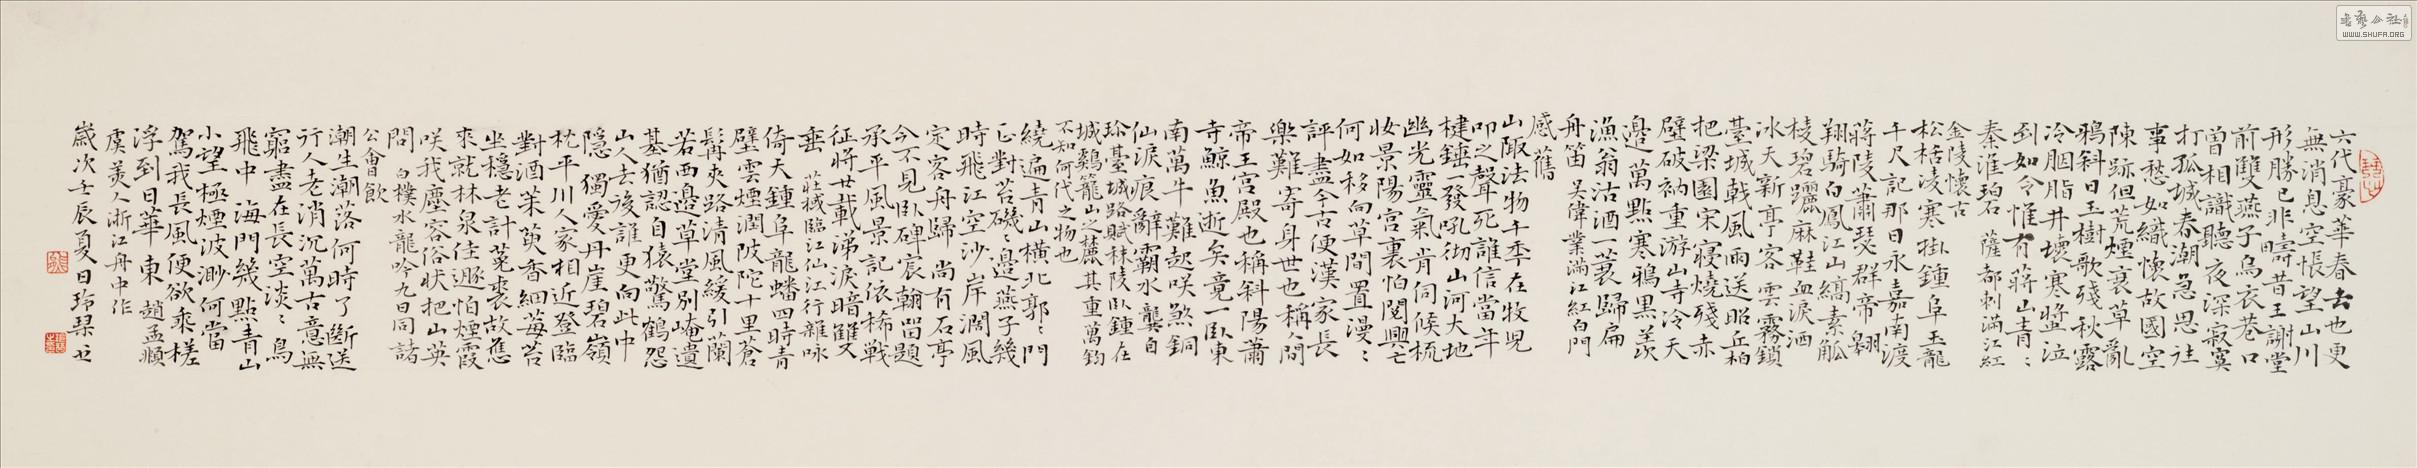 六代豪華春去也更
無消息空悵望山川
形勝已非疇昔王謝堂
前雙燕子烏衣巷口
曾相識聽夜深寂寞
打孤城春潮急思往
事愁如織懷故國空
陳跡但荒煙衰草亂
鴉斜日玉樹歌殘秋露
冷胭脂井壞寒螿泣
到如今惟有蔣山青〻
秦淮碧 薩都剌滿江紅
金陵懷古
松栝凌寒掛鍾阜玉龍
千尺記那日永嘉南渡
蔣陵蕭瑟群帝翱
翔騎白鳳江山縞素觚
棱碧躧麻鞋血淚洒
冰天新亭客雲霧鎖
臺城戟風雨送昭丘柏
把梁園宋寢燒殘赤
壁破衲重游山寺冷天
邊萬點寒鴉黑羨
漁翁沽酒一蓑歸扁
舟笛 吴偉業滿江紅白門
感舊
山陬法物千季在牧兒
叩之聲死誰信當年
楗錘一發吼彻山河大地
幽光靈氣肯伺候梳
妝景陽宮裏怕閱興亡
何如移向草間置漫〻
評盡今古便漢家長
樂難寄身世也稱人間
帝王宮殿也稱斜陽蕭
寺鯨魚逝矣竟一臥東
南萬牛難起咲煞銅
仙淚痕辭霸水 龔自
珍臺城路賦秣陵臥鍾在
城鷄籠山之麓其重萬鈞
不知何代之物也
繞遍青山橫北郭〻門
正對苔磯〻邊燕子幾
時飛江空沙岸濶風
定客舟歸 尚有石亭
今不見臥碑宸翰畱題
承平風景記依稀戰
征將廿載涕淚暗雙
垂 莊棫臨江仙江行雜咏
倚天鍾阜龍蟠四時青
壁雲煙潤陂陀十里蒼
髯夾路清風緩引蘭
若西邊草堂別崦遺
基猶認自猿驚鶴怨
山人去後誰更向此中
隱 獨愛丹崖碧嶺
枕平川人家相近登臨
對酒茱萸香細莓苔
坐穩老計菟裘故應
來就林泉佳遯怕煙霞
咲我塵容俗狀把山英
問 白樸水龍吟九日同諸
公會飲
潮生潮落何時了斷送
行人老消沉萬古意無
窮盡在長空淡〻鳥
飛中 海門幾點青山
小望極煙波渺何當
駕我長風便欲乘槎
浮到日華東 趙孟頫
虞美人浙江舟中作
歲次壬辰夏日
WWW.SHUFA.ORG